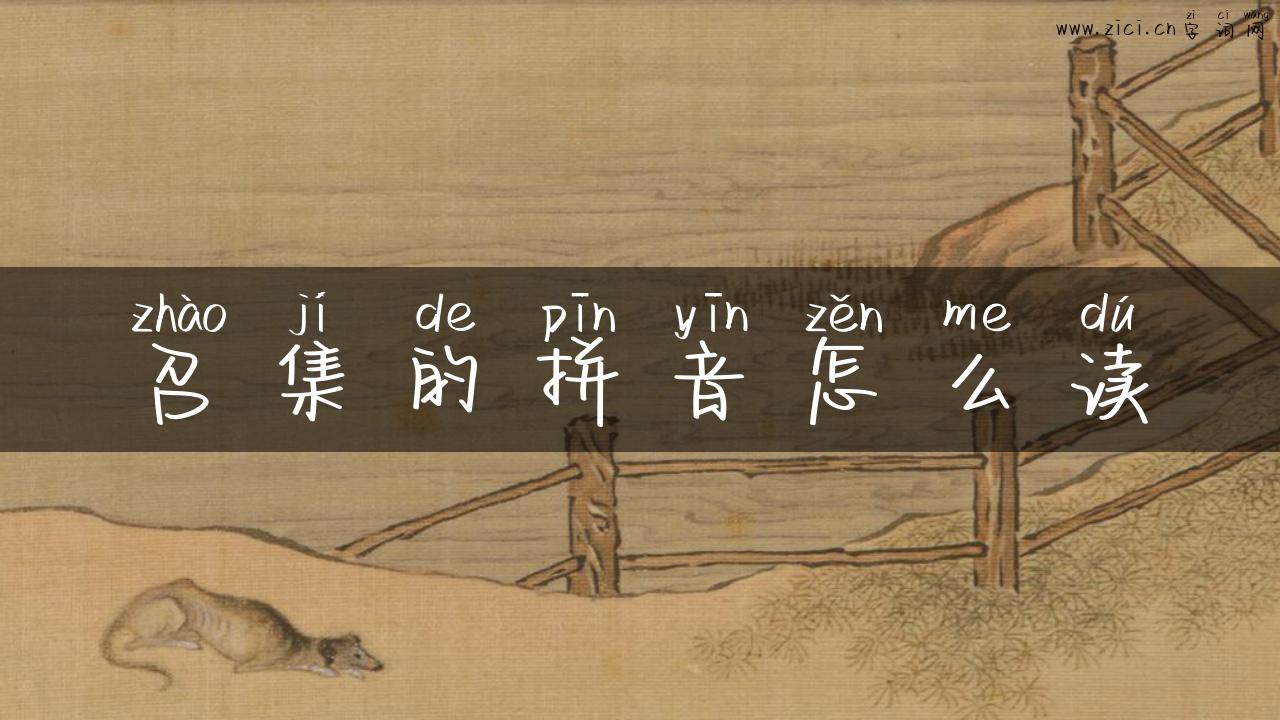 zi ci wang
www.zici.cn 字词网
zhào jí de pīn yīn zěn me dú
召集的拼音怎么读